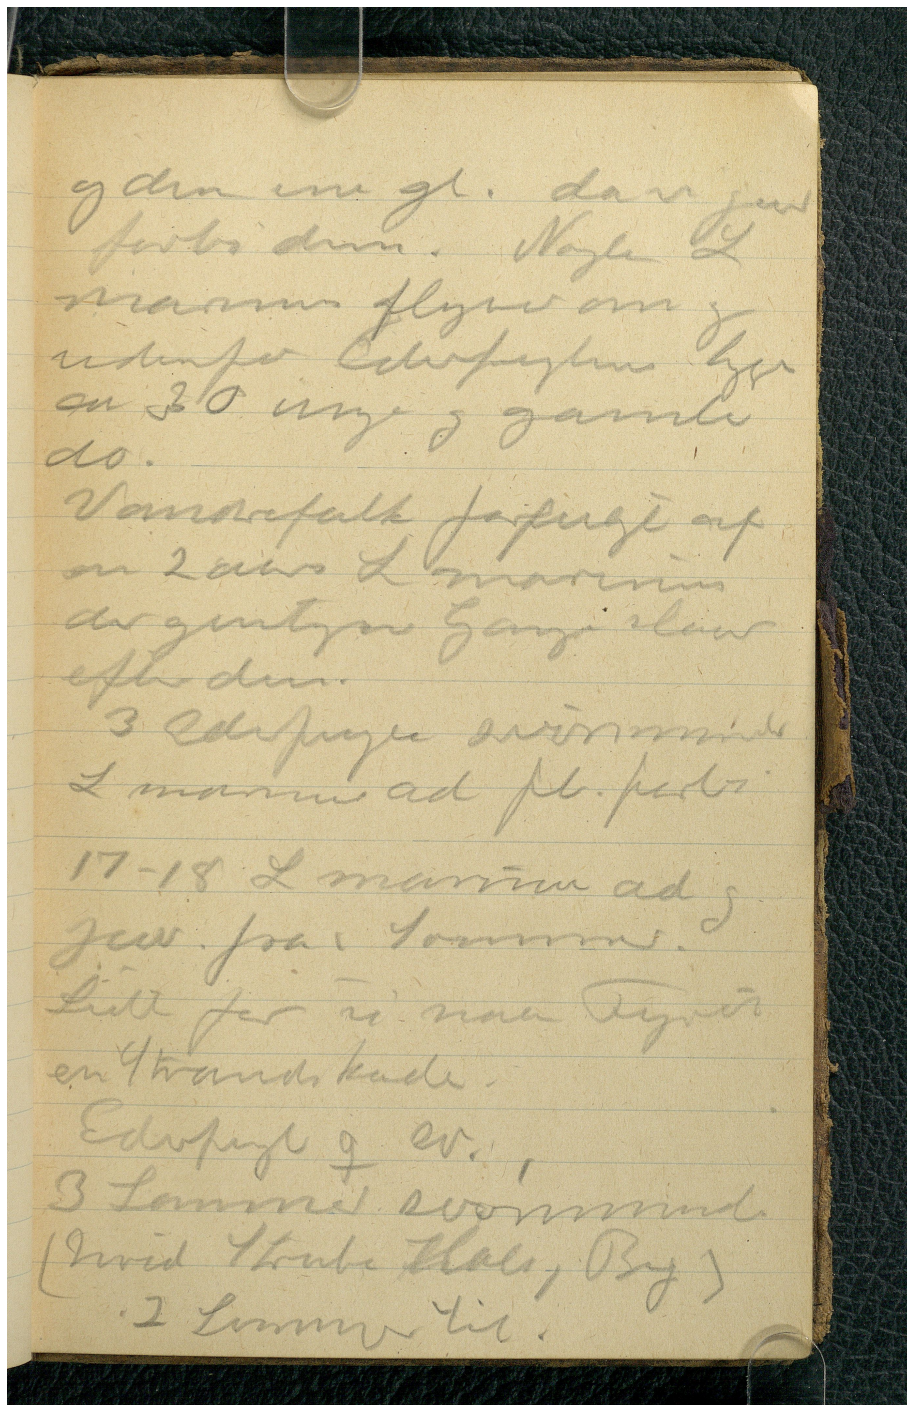 og den ene gl. da vi foer
forbi dem. Nogle L
marinus flyver om og
udenfor Ederfuglene ligger
ca 30 unge og gamle
do.
Vandrefalk forfulgt af
en 2 aars L marinus
der gentagne Gange slaar
efter den.
3 Ederfugle svömmende
L marinus ad fl. forbi
17-18 L marinus ad og
juv. fra Lommer.
Lidt før vi naar Fyret
en Strandskade.
Ederfugl ♀ sv.
3 Lommer svömmende
(hvid Strube Hals, Bryst)
2 Lommer til.